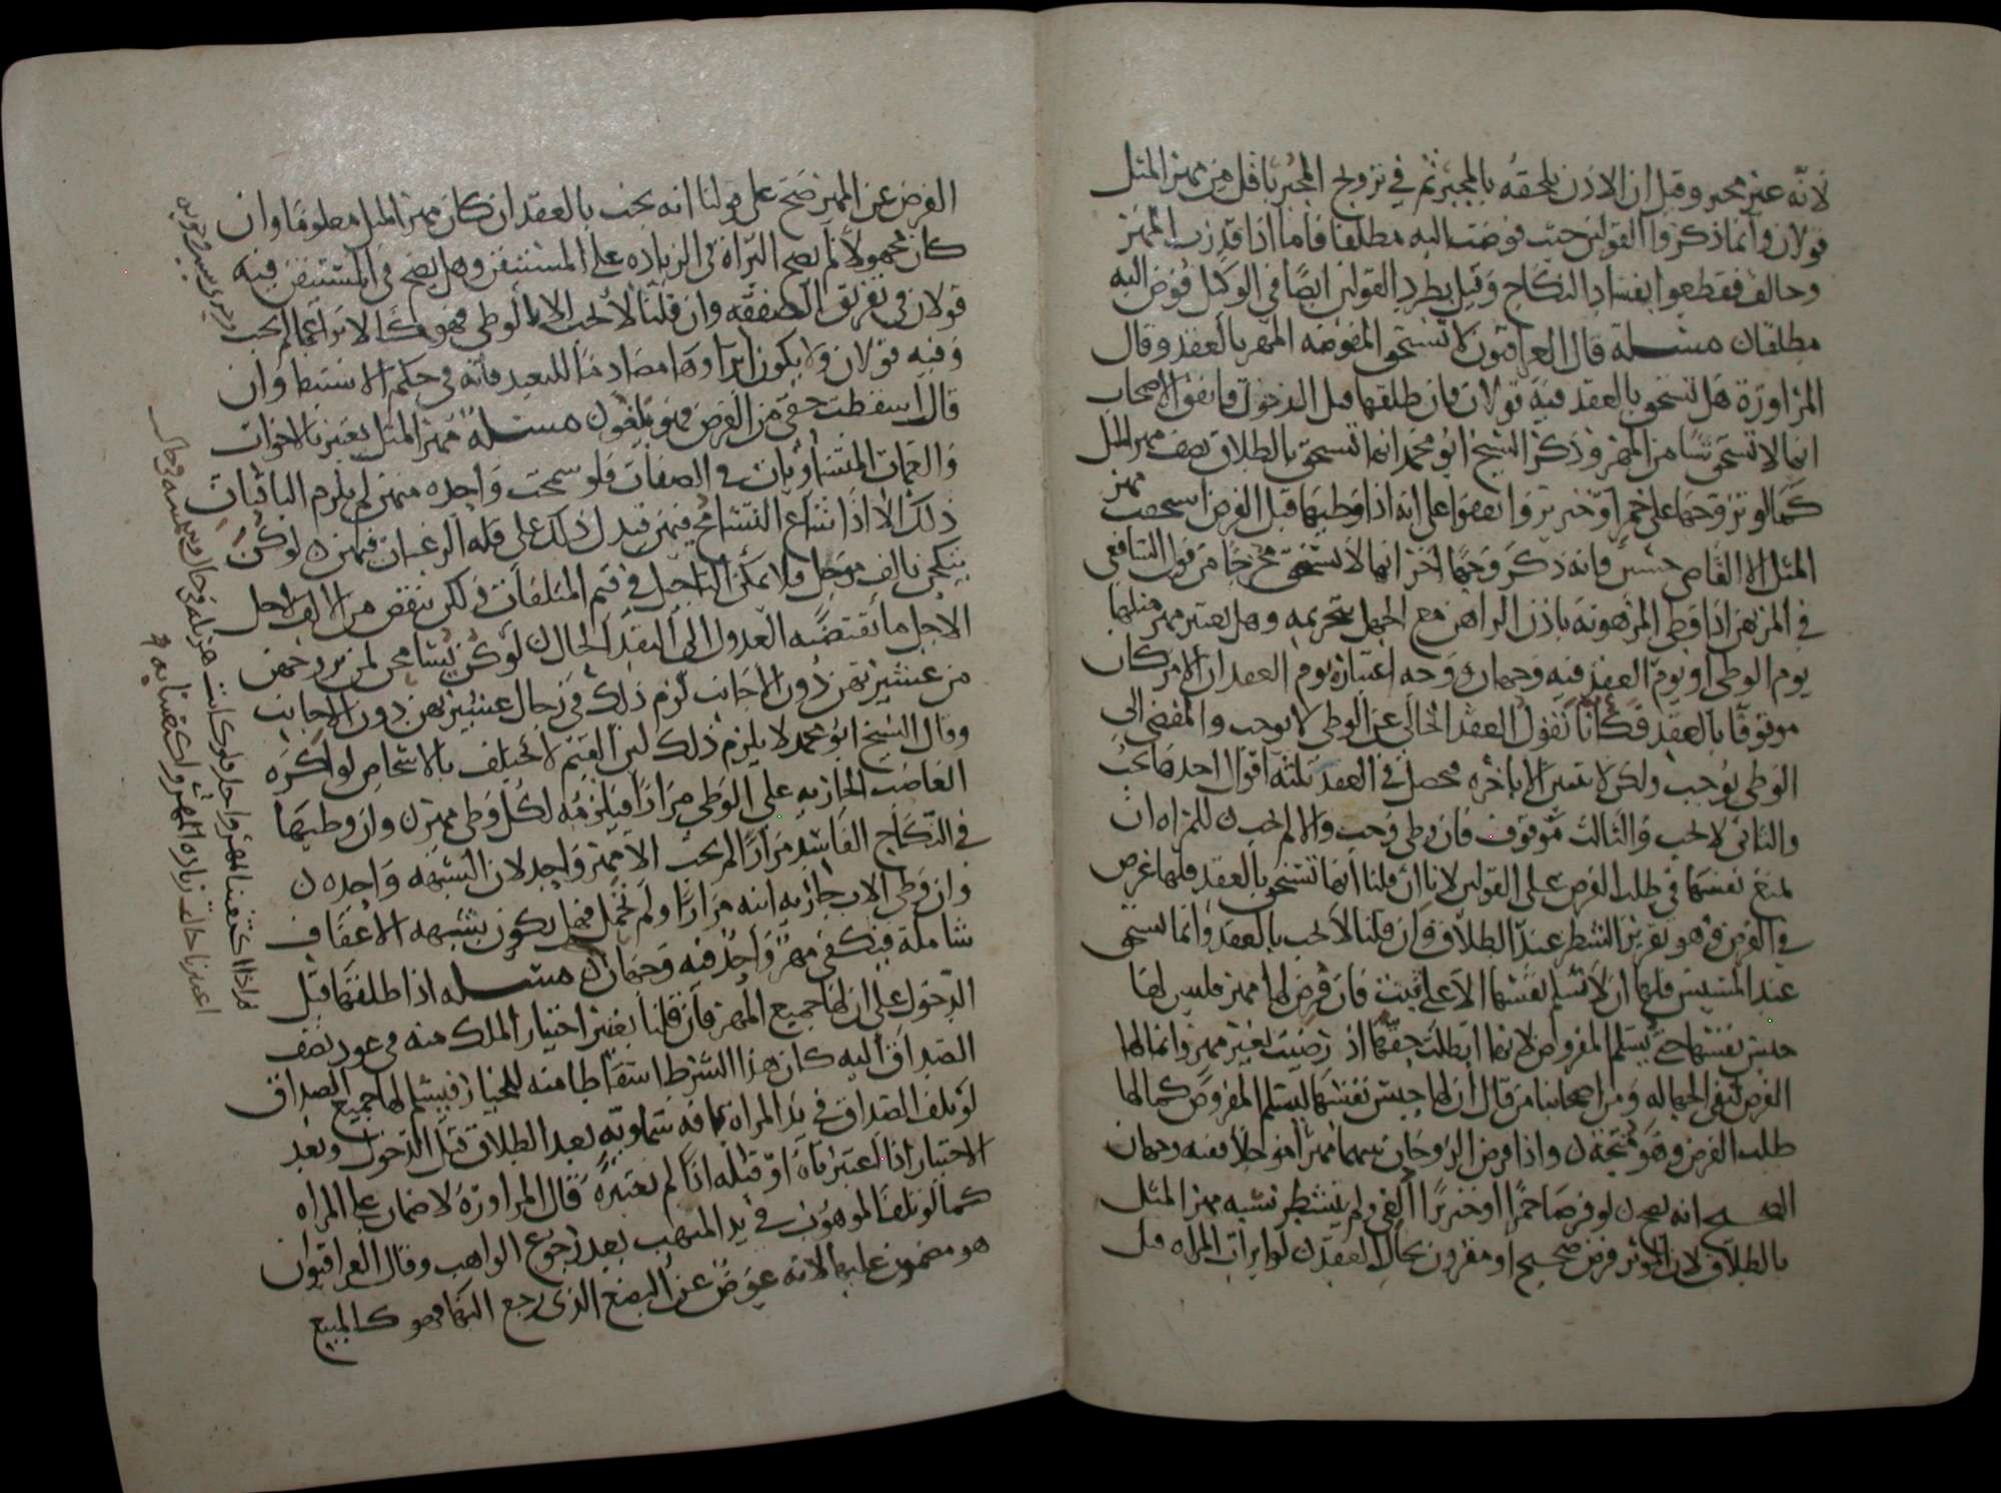 لانه غير مجبر وقيل ان الاذن يلحقه بالمجبر ثم في تزويج المجبر باقل من مهر المثل
قولان وانما ذكروا القولين حيث فوضت اليه مطلقا فاما اذا قدرت المهر
وخالف فقطعوا بفساد النكاح وقيل بطرد القولين ايضا في الوكيل فوض اليه
مطلقا مسئلة قال العراقيون لا تستحق المفوضة المهر بالعقد وقال
المراوزة هل تستحق بالعقد فيه قولان فان طلقها قبل الدخول فاتفق الاصحاب
انها لا تستحق شيا من المهر وذكر الشيخ ابو محمد انها تستحق بالطلاق نصف مهر المثل
كما لو تزوجها على خمر او خنزير واتفقوا على انه اذا وطيها قبل الفرض استحقت مهر
المثل الا القاضي حسين فانه ذكر وجها اخر انها لا تستحق مخرجا من قول الشافعي
في المرتهن اذا وطي المرهونة باذن الراهن مع الجهل بتحريمه وهل يعتبر مهر مثلها
يوم الوطي او يوم العقد فيه وجهان ووجه اعتباره يوم العقد ان الامر كان
موقوفا بالعقد فكانا نقول العقد الخالي عن الوطي لا يوجب والمفضي الى
الوطي يوجب ولكن لا يتبين الا باخره فحصل في العقد ثلثة اقوال احدها يجب
والثاني لا يجب والثالث موقوف فان وطي وجب والا لم يجب للمراه ان
تمنع نفسها في طلب الفرض على القولين لانا ان قلنا انها تستحق بالعقد فلها غرض
في الفرض وهو تقرير الشطر عند الطلاق وان قلنا لا يجب بالعقد وانما يستحق
عند المسيس فلها ان لا تسلم نفسها الا على ثبت فان فرض لها مهر فليس لها
حبس نفسها حتى يسلم المفروض لانها ابطلت حقها اذ رضيت بغير مهر وانما لها
الفرض لتنفي الجهاله ومن اصحابنا من قال ان لها حبس نفسها ليسلم المفروض كما لها
طلب الفرض وهو متجه واذا فرض الزوجان بينهما مهرا موجلا ففيه وجهان
الصحيح انه يصح لو فرضا خمرا او خنزيرا الغي ولم يتشطر بسببه مهر المثل
بالطلاق لان الموثر فرض صحيح او مقرون بحال العقد لو ابرات المراه قبل
الفرض عن المهر صح على قولنا انه يجب بالعقد ان كان مهر المثل معلوما وان
كان مجهولا لم يصح البراة في الزياده على المستيقن وهل يصح في المستيقن فيه
قولان في تفريق الصفقه وان قلنا لا يجب الا بالوطي فهو كالابراء عما لم يجب
وفيه قولان ولا يكون ابراوها مصادما للتعبد فانه في حكم الاستيطا وان
قال اسقطت حقي من الفرض فهو لغو مسئلة مهر المثل يعتبر بالاخوات
والعمات المتساويات في الصفات فلو سمحت واحده منهن لم يلزم الباقيات
ذلك الا اذا شاع التسامح فيهن فيدل ذلك على قلة الرغبات فيهن لو كن
ينكحن بالف موجل فلا يمكن التاجيل في قيم المتلفات ولكن ينقص من الالف لاجل
الاجل ما يقتضيه العدول الى النقد الحال لو كن يسامحن لمن يريدهن
من عشيرتهن دون الاجانب لزم ذلك في رجال عشيرتهن دون الاجانب
وقال الشيخ ابو محمد لا يلزم ذلك لان القيم لا تختلف بالاشخاص لو اكره
الغاصب الجاريه على الوطي مرارا فيلزمه لكل وطي مهر وان وطيها
في النكاح الفاسد مرارا لم يجب الا مهر واحد لان الشبهه واحده
وان وطي الاب جاريه ابنه مرارا ولم تحمل فهل يكون بشبهه الاعفاف
شاملة فيكفي مهر واحد فيه وجهان مسئله اذا طلقها قبل
الدخول على ان لها جميع المهر فان قلنا يعتبر اختيار الملك منه في عود نصف
الصداق اليه كان هذا الشرط اسقاطا منه للخيار فيسلم لها جميع الصداق
لو تلف الصداق في يد المراة بافه سماويه بعد الطلاق قبل الدخول وبعد
الاختيار اذا اعتبرناه او قبله اذا لم نعتبره قال المراوزة لا ضمان على المراه
كما لو تلف الموهوب في يد المتهب بعد رجوع الواهب وقال العراقيون
هو مضمون عليها لانه عوض عن البضع الذي رجع اليها فهو كالمبيع